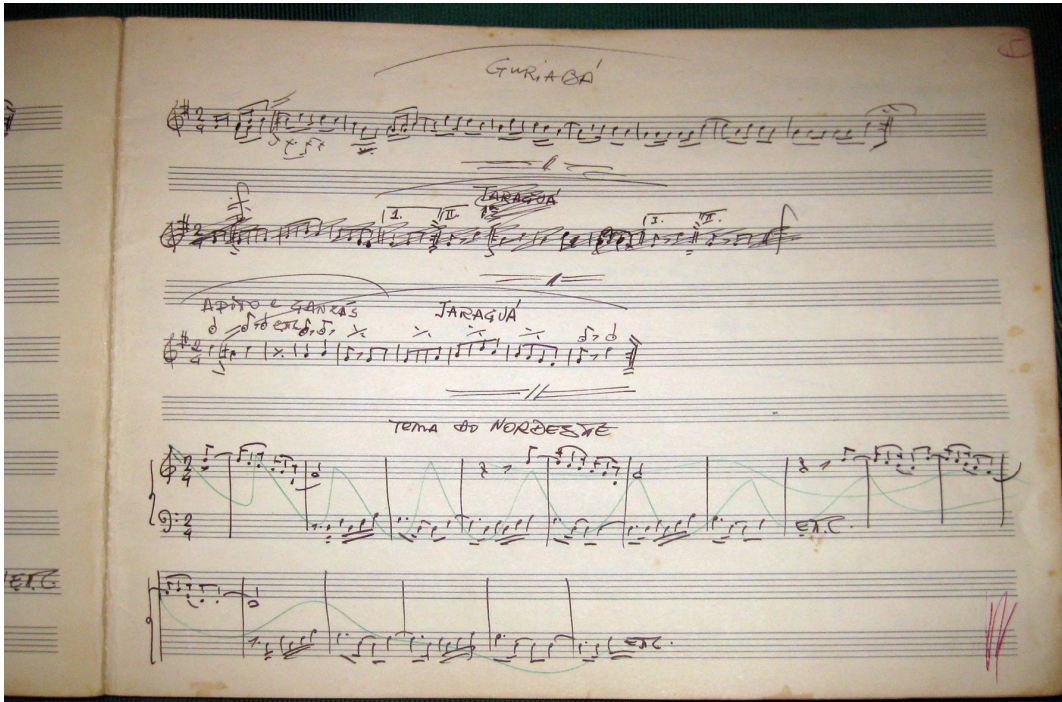 5
GURIABÁ
JARAGUÁ
I. II. I. II.
APITO e GANZÁS
JARAGUÁ
TEMA do NORDESTE
ETC.
ETC.
ETC.